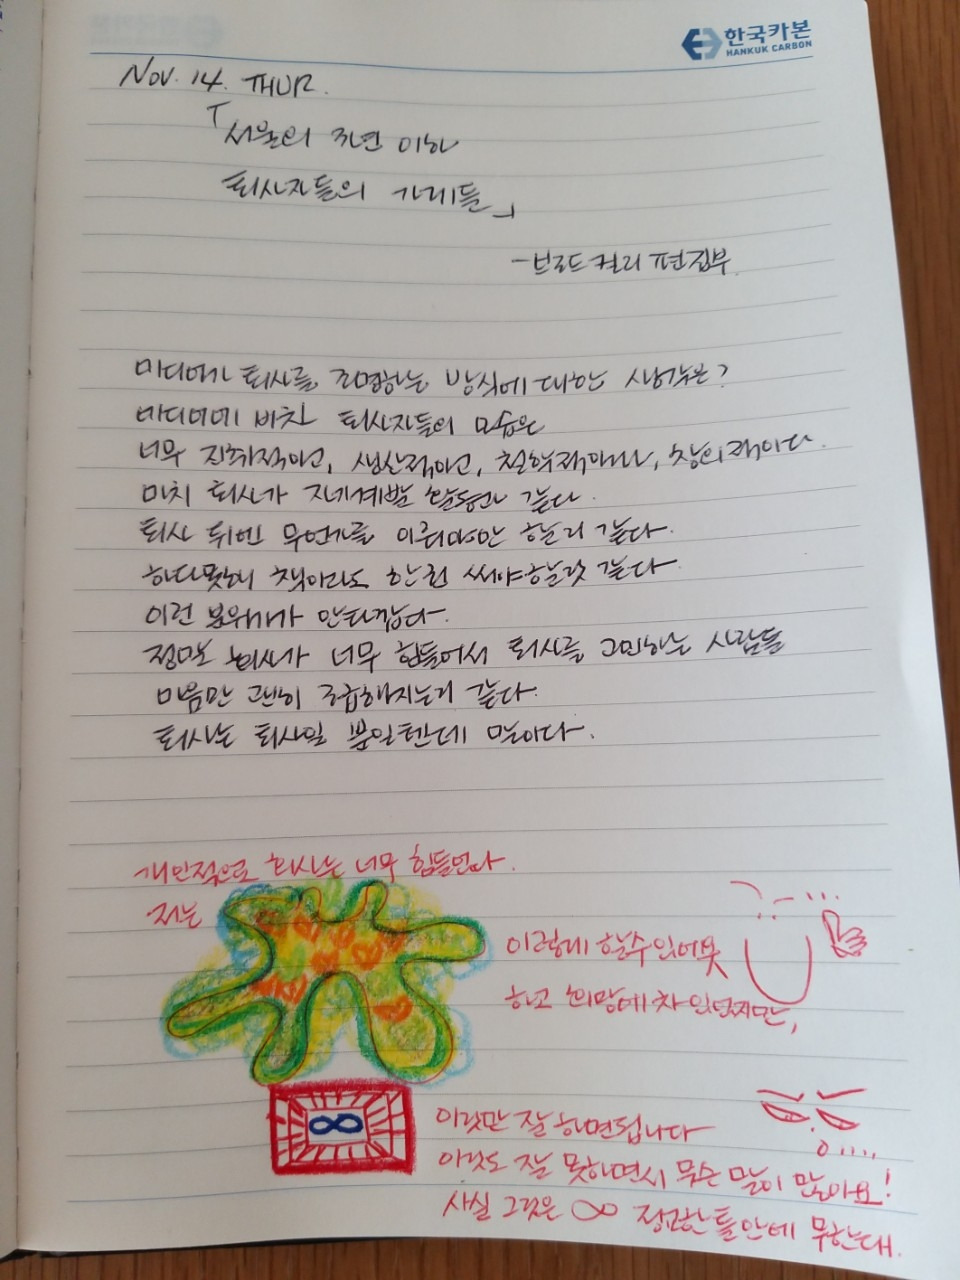 한국카본
HANKUK CARBON
Nov. 14. THUR.
「서울의 3년 이하
퇴사자들의 가게들」
-브로드컬리 편집부.
미디어가 퇴사를 조명하는 방식에 대한 생각은?
미디어에 비친 퇴사자들의 모습은
너무 진취적이고, 생산적이고, 철학적이며, 창의적이다.
마치 퇴사가 자기계발 활동만 같다.
퇴사 뒤엔 무언가를 이뤄야만 할 거 같다.
하다못해 책이라도 한권 써야할 것 같다.
이런 분위기가 안타깝다.
정말로 회사가 너무 힘들어서 퇴사를 고민하는 사람들
마음만 괜히 조급해지는거 같다.
퇴사는 퇴사일 뿐일텐데 말이다.
개인적으로 회사는 너무 힘들었다.
저는
이렇게 할수있어욧
하고 희망에 차 있었지만,
∞
이것만 잘 하면됩니다
이것도 잘 못하면서 무슨 말이 많아요!
사실 그것은 ∞ 정교한 틀안에 무한대.